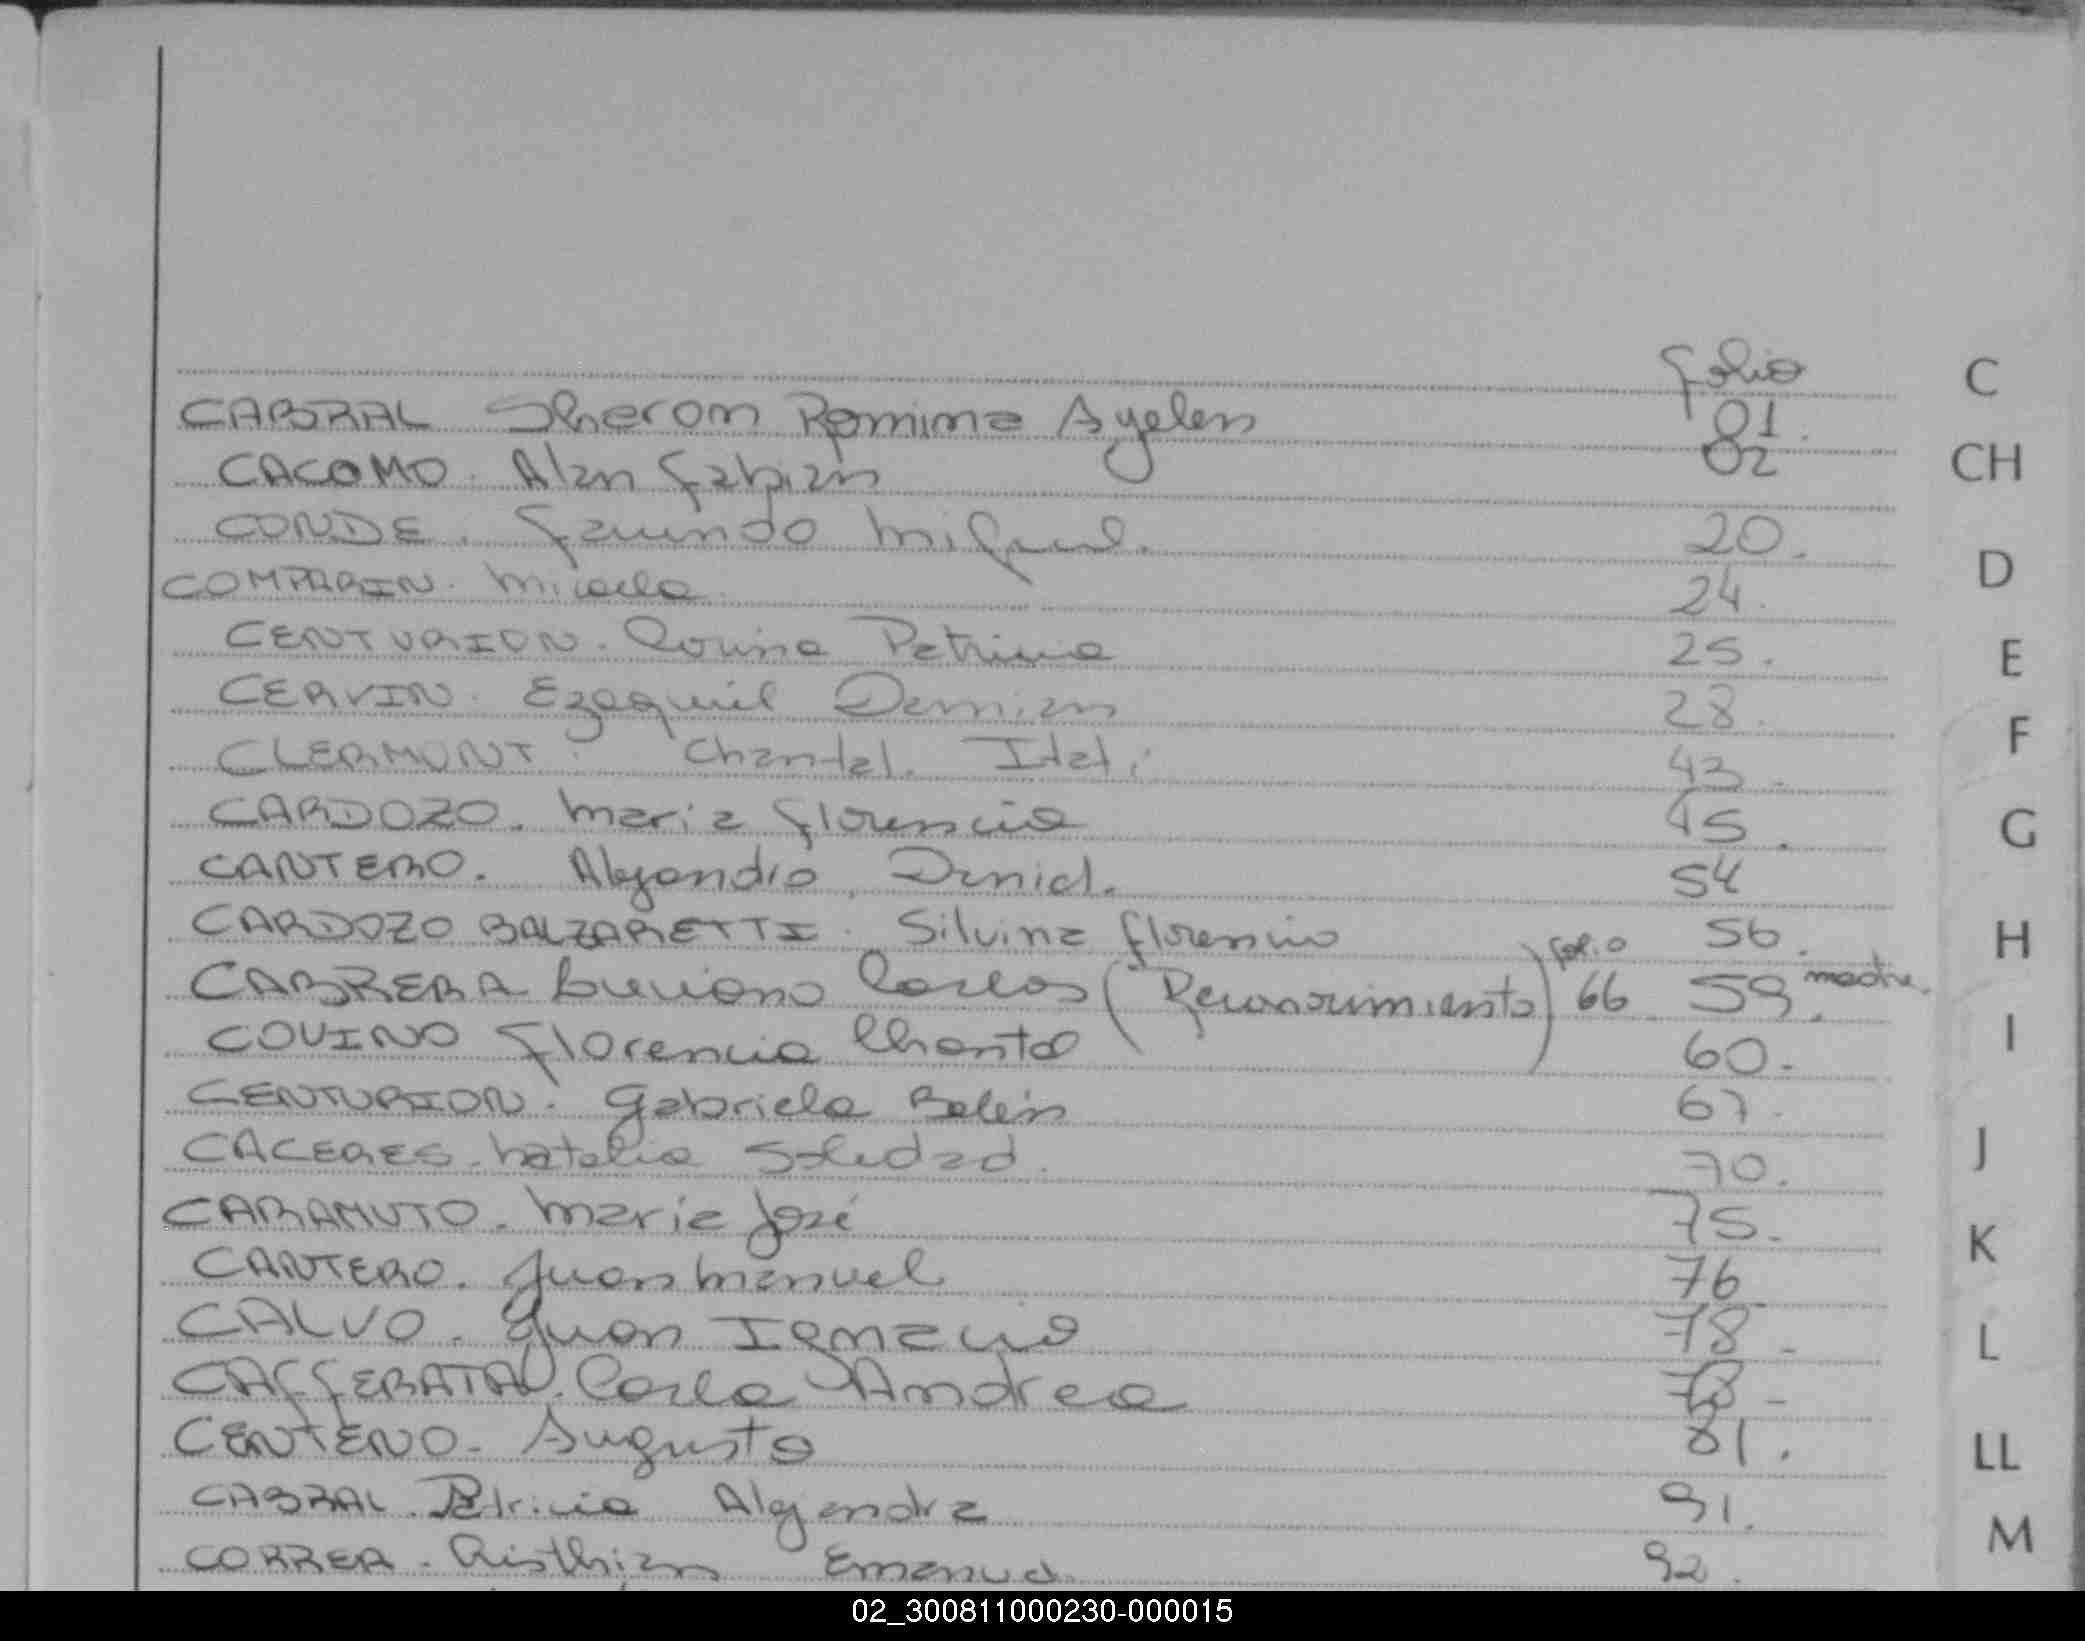 folio
C
CABRAL Sherom Romina Ayelen 01.
CACOMO. Alan Fabian 02
CH
CONDE. Facundo Miguel. 20.
D
COMPARIN. Micaela 24.
CENTURION. Corina Patricia 25.
E
CERVIN. Ezequiel Damian 28.
F
CLERMONT. Chantal. Itatí 43.
CARDOZO. Maria Florencia 45.
G
CANTERO. Alejandro Daniel. 54
CARDOZO BALZARETTI. Silvina Florencia 56.
H
CABRERA Luciano Carlos (Reconocimiento) folio 66. 59. madre.
I
COVINO Florencia Chantal 60.
CENTURION. Gabriela Belén 67.
J
CACERES. Natalia Soledad. 70.
CARAMUTO. Maria José 75.
K
CANTERO. Juan Manuel 76
CALVO. Juan Ignacio 78.
L
CAFFERATA. Carla Andrea
CENTENO. Augusto 81.
LL
CABRAL. Patricia Alejandra 91.
M
CORREA. Cristhian Emanuel. 92.
02_300811000230-000015